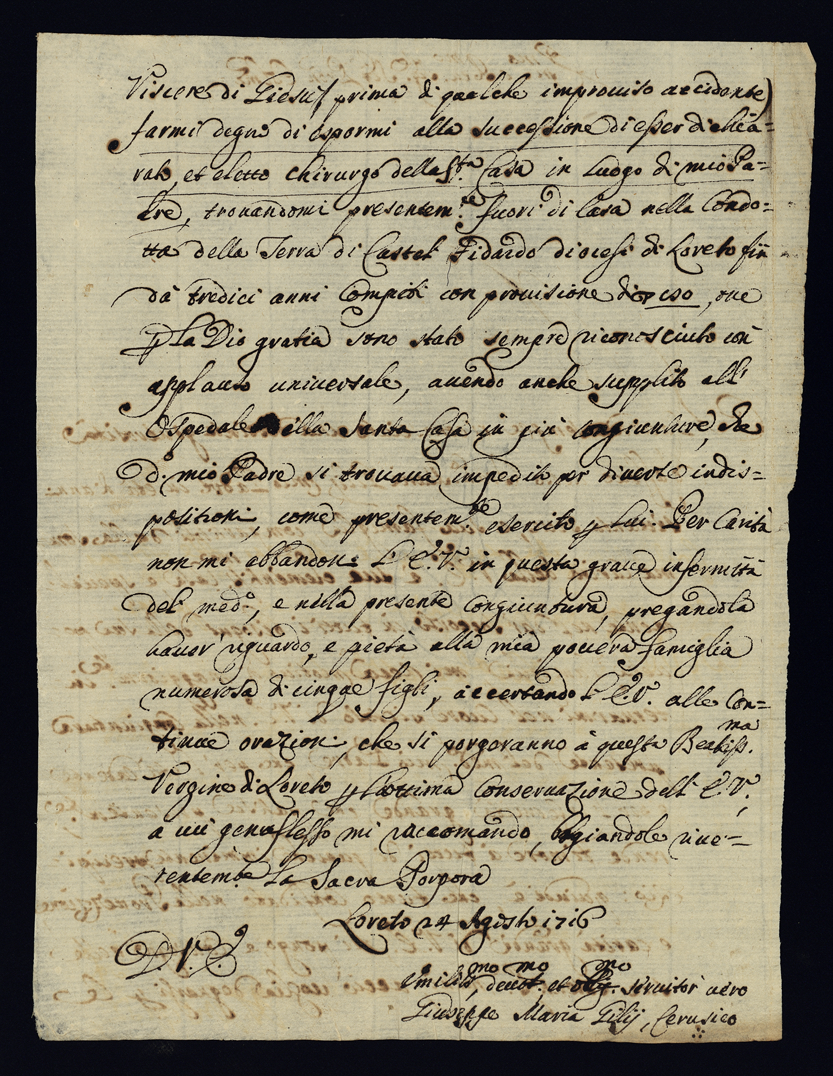 Viscere di Giesù prima di qualche improuiso accidente)
farmi degno di espormi alla successione di esser dichia=
rato, et eletto chirurgo della S.ta Casa in luogo di mio Pa=
dre, trouandomi presentem.te fuori di Casa nella Condo=
tta della Terra di Castel Fidardo diocesi di Loreto fin
da tredici anni Compiti con prouisione di 150, oue
p la Dio gratia sono stato sempre riconosciuto con
applauso uniuersale, auendo anche supplito all'
Ospedale della Santa Casa in più congiunture, che
d.o mio Padre si trouaua impedito per diuerse indis=
positioni, come presentem.te esercito p lui. Per Carità
non mi abbandoni l'E.V. in questa graue infermità
del med.o, e nella presente congiuntura, pregandola
hauer riguardo, e pietà alla mia pouera famiglia
numerosa di cinque figli, accertando l'E.V. alle Con=
tinue orazioni, che si porgeranno à questa Beatiss.ma
Vergine di Loreto p l'ottima Conseruazione dell'E.V.,
a cui genuflesso mi raccomando, bagiandole riue=
rentem.te la Sacra Porpora
Loreto 24 Agosto 1716
D.V.E.
Umiliss.mo, deuot.mo et obl.mo seruitor uero
Giuseppe Maria Gilij, Cerusico